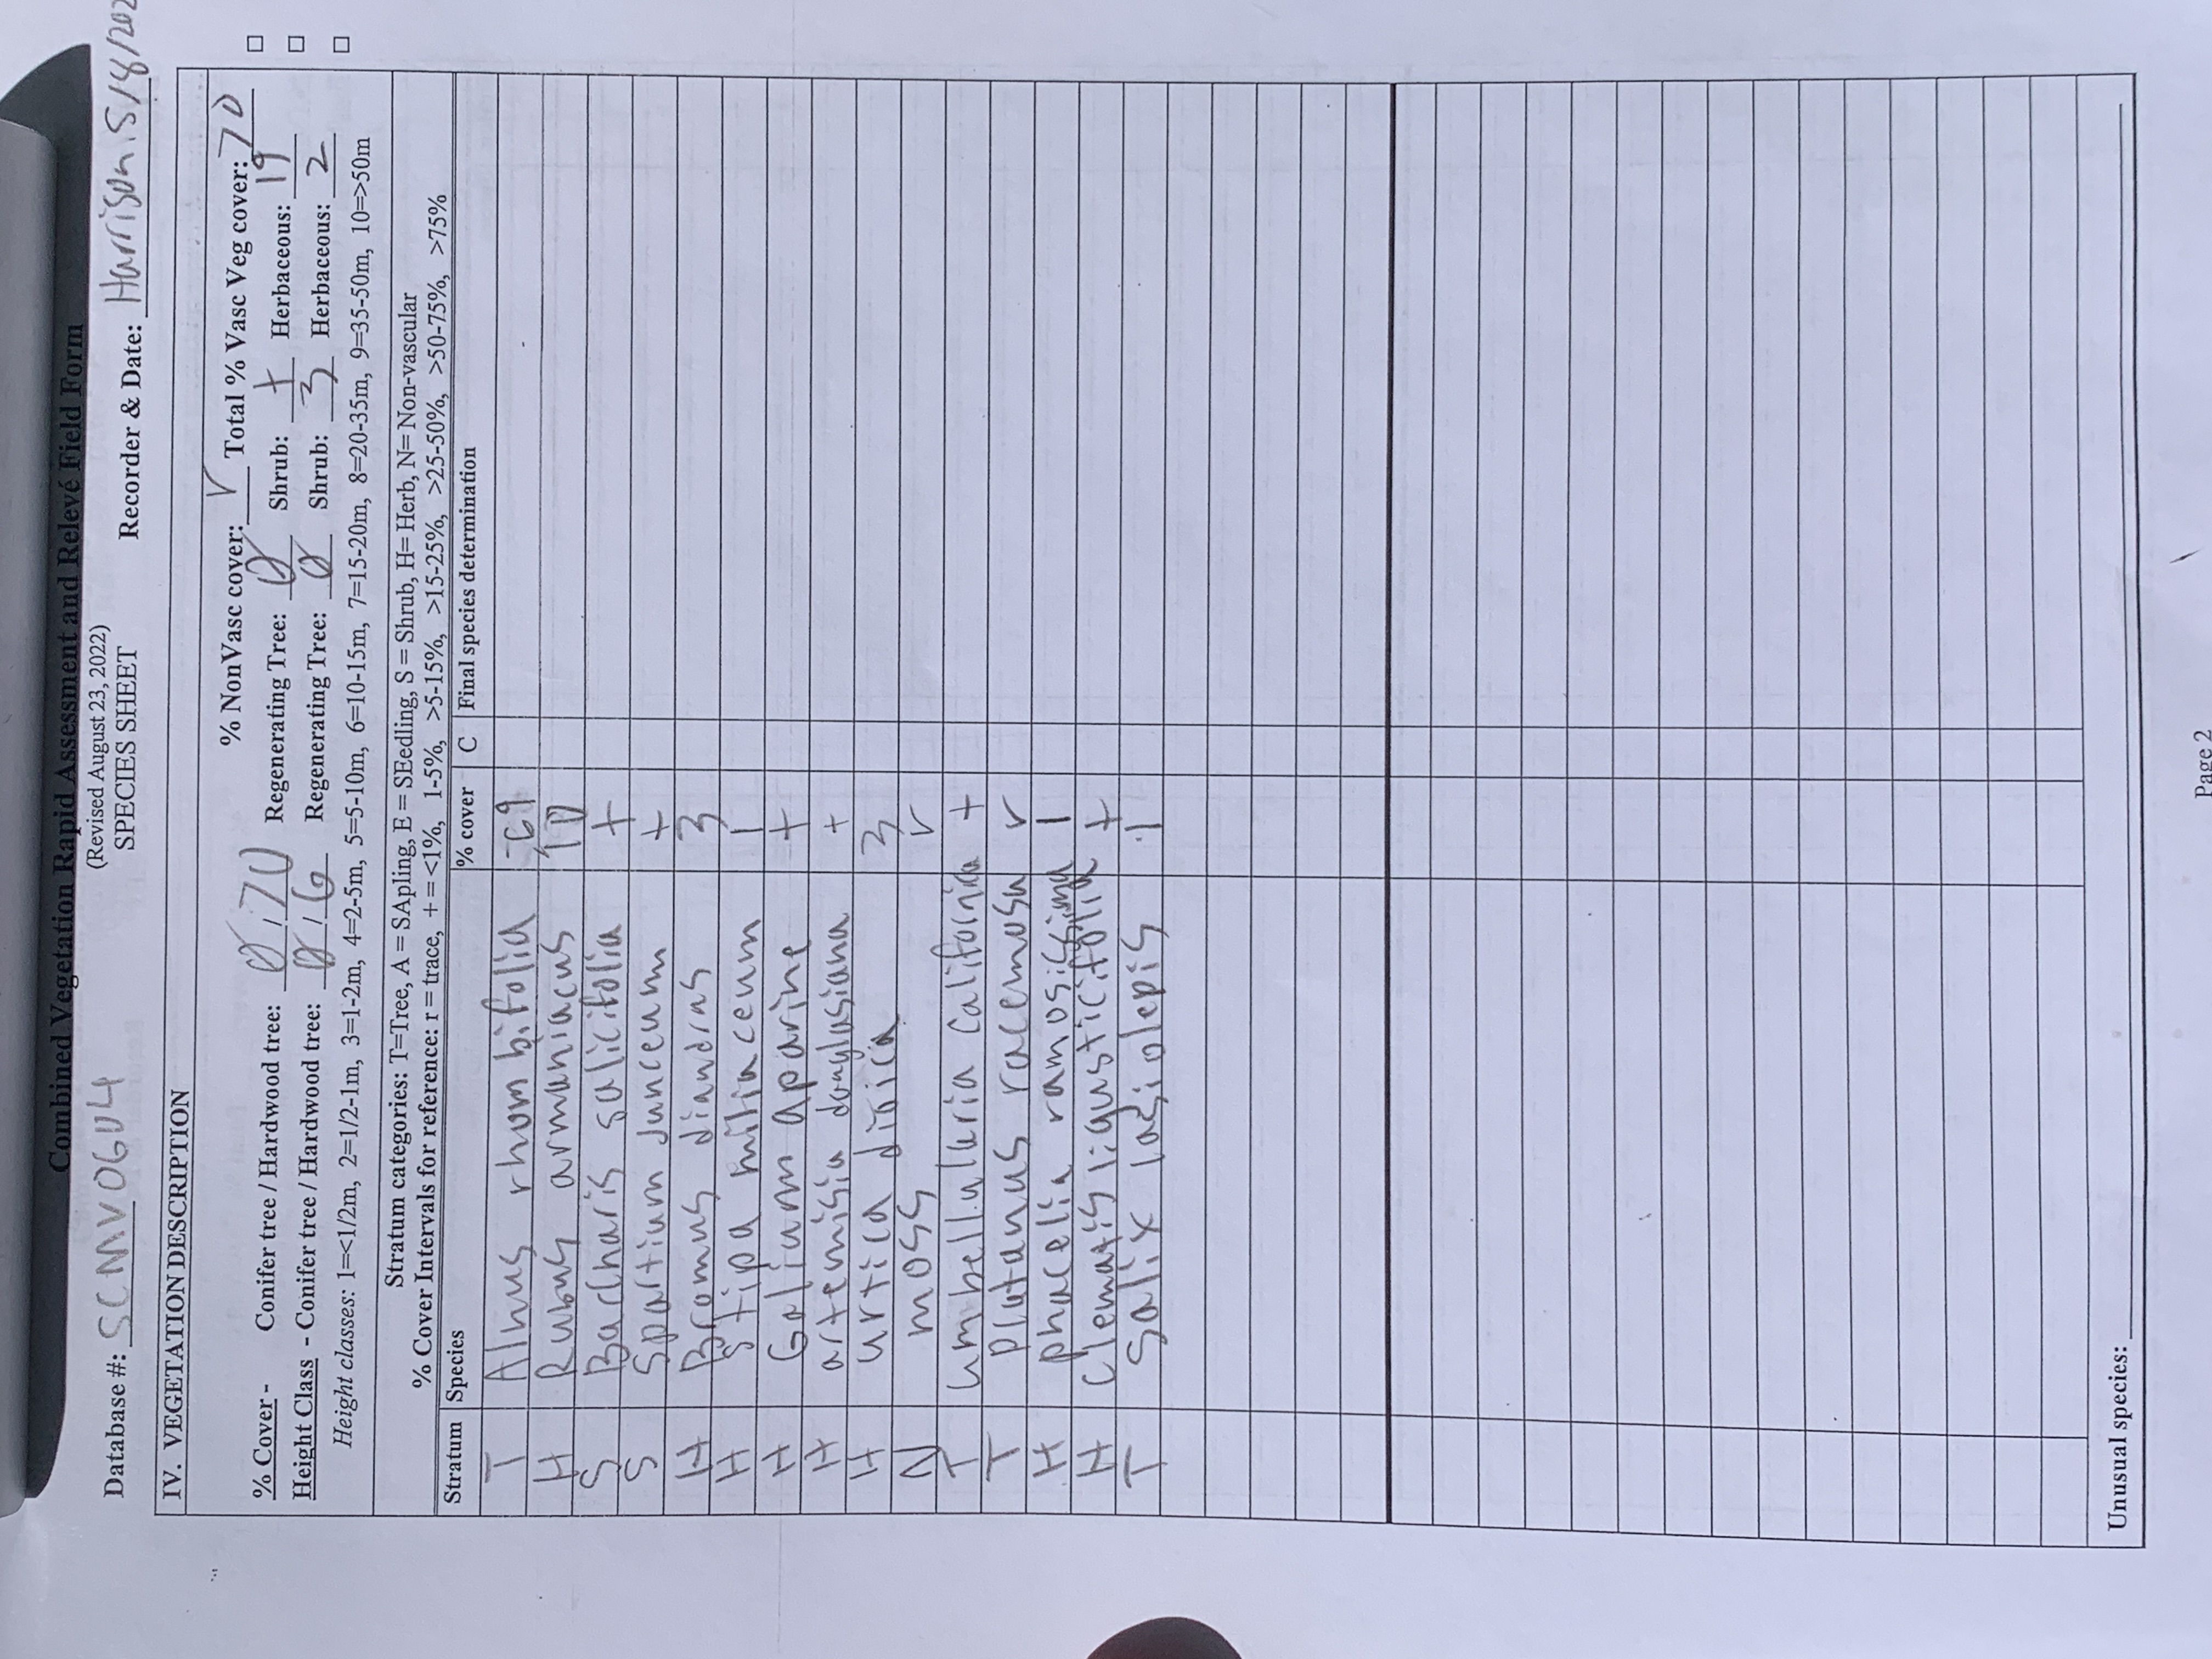 Combined Vegetation Rapid Assessment and Relevé Field Form
(Revised August 23, 2022)
SPECIES SHEET
Database #: SCMV0604 Recorder & Date: Harrison 5/8/202
IV. VEGETATION DESCRIPTION
% NonVasc cover: r Total % Vasc Veg cover: 70
% Cover - Conifer tree / Hardwood tree: 0 / 70 Regenerating Tree: 0 Shrub: + Herbaceous: 19
Height Class - Conifer tree / Hardwood tree: 0 / 6 Regenerating Tree: 0 Shrub: 3 Herbaceous: 2
Height classes: 1=<1/2m, 2=1/2-1m, 3=1-2m, 4=2-5m, 5=5-10m, 6=10-15m, 7=15-20m, 8=20-35m, 9=35-50m, 10=>50m
Stratum categories: T=Tree, A = SApling, E = SEedling, S = Shrub, H= Herb, N= Non-vascular
% Cover Intervals for reference: r = trace, + = <1%, 1-5%, >5-15%, >15-25%, >25-50%, >50-75%, >75%
Stratum Species % cover C Final species determination
T Alnus rhombifolia 69
H Rubus armaniacus 10
S Baccharis salicifolia +
S Spartium Junceum +
H Bromus diandrus 3
H Stipa miliaceum 1
H Galium aparine +
H artemisia douglasiana +
H urtica dioica 3
N moss r
T umbellularia californica +
T platanus racemosa r
H phacelia ramosissima 1
H Clematis ligusticifolia +
T Salix lasiolepis .1
Unusual species:
Page 2